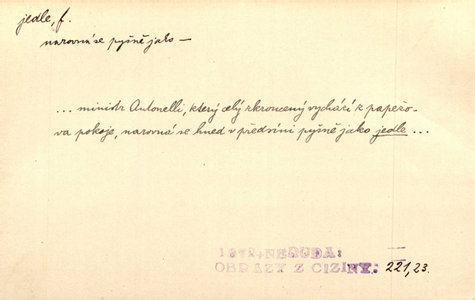 jedle, f.
narovná se pyšně jako —
... ministr Antonelli, který celý zkroucený vychází z papežo-
va pokoje, narovná se hned v předsíni pyšně jako jedle ...
1872, NERUDA:
OBRAZY Z CIZINY: 221, 23.